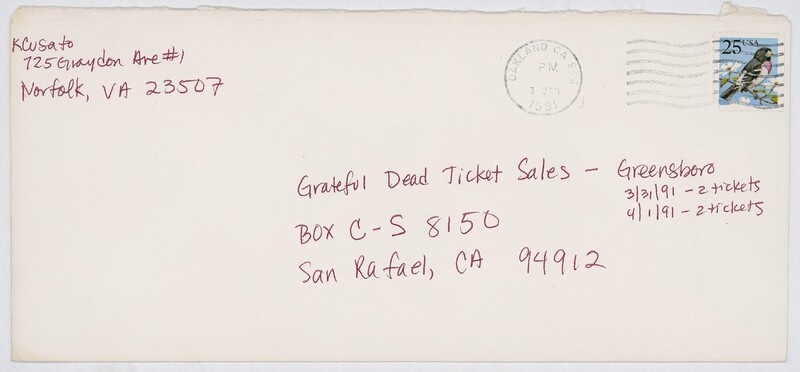 KCusato
725 Graydon Ave #1
Norfolk, VA 23507
OAKLAND CA
PM
3 JAN
1991
25 USA
Grateful Dead Ticket Sales - Greensboro
3/31/91 - 2 tickets
4/1/91 - 2 tickets
BOX C-S 8150
San Rafael, CA 94912